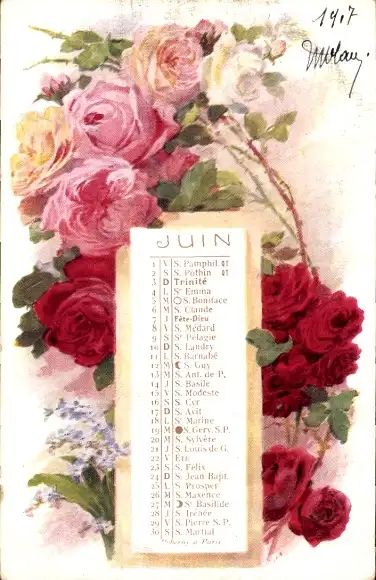 19.7
JUIN
1 V S. Pamphil. QT
2 S S. Pothin QT
3 D Trinité
4 L Sᵉ Emma
5 M S. Boniface
6 M S. Claude
7 J Fête-Dieu
8 V S. Médard
9 S Sᵉ Pélagie
10 D S. Landry
11 L S. Barnabé
12 M S. Guy
13 M S. Ant. de P.
14 J S. Basile
15 V S. Modeste
16 S S. Cyr
17 D S. Avit
18 L Sᵉ Marine
19 M S. Gerv. S. P.
20 M S. Sylvère
21 J S. Louis de G.
22 V ÉTÉ
23 S S. Félix
24 D S. Jean Bapt.
25 L S. Prosper
26 M S. Maxence
27 M Sᵉ Basilide
28 J S. Irénée
29 V S. Pierre S. P.
30 S S. Martial
à Paris